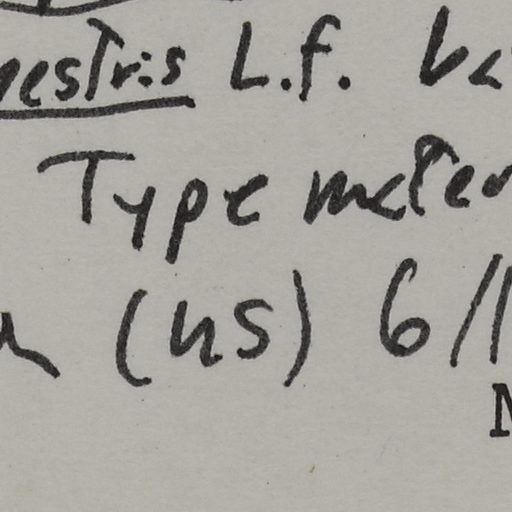 estris L.f. va
Type mater
(US) 6/1
N